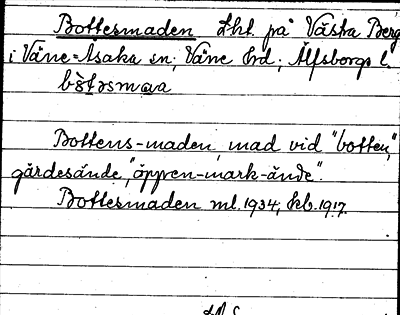 Bottesmaden Lht. på Västra Berg
i Väne-Åsaka sn; Väne hd; Älfsborgs l.
Bottens-maden, mad vid "botten,"
gärdesände, "öppen-mark-ände".
Bottesmaden ml. 1934, kb. 1917.